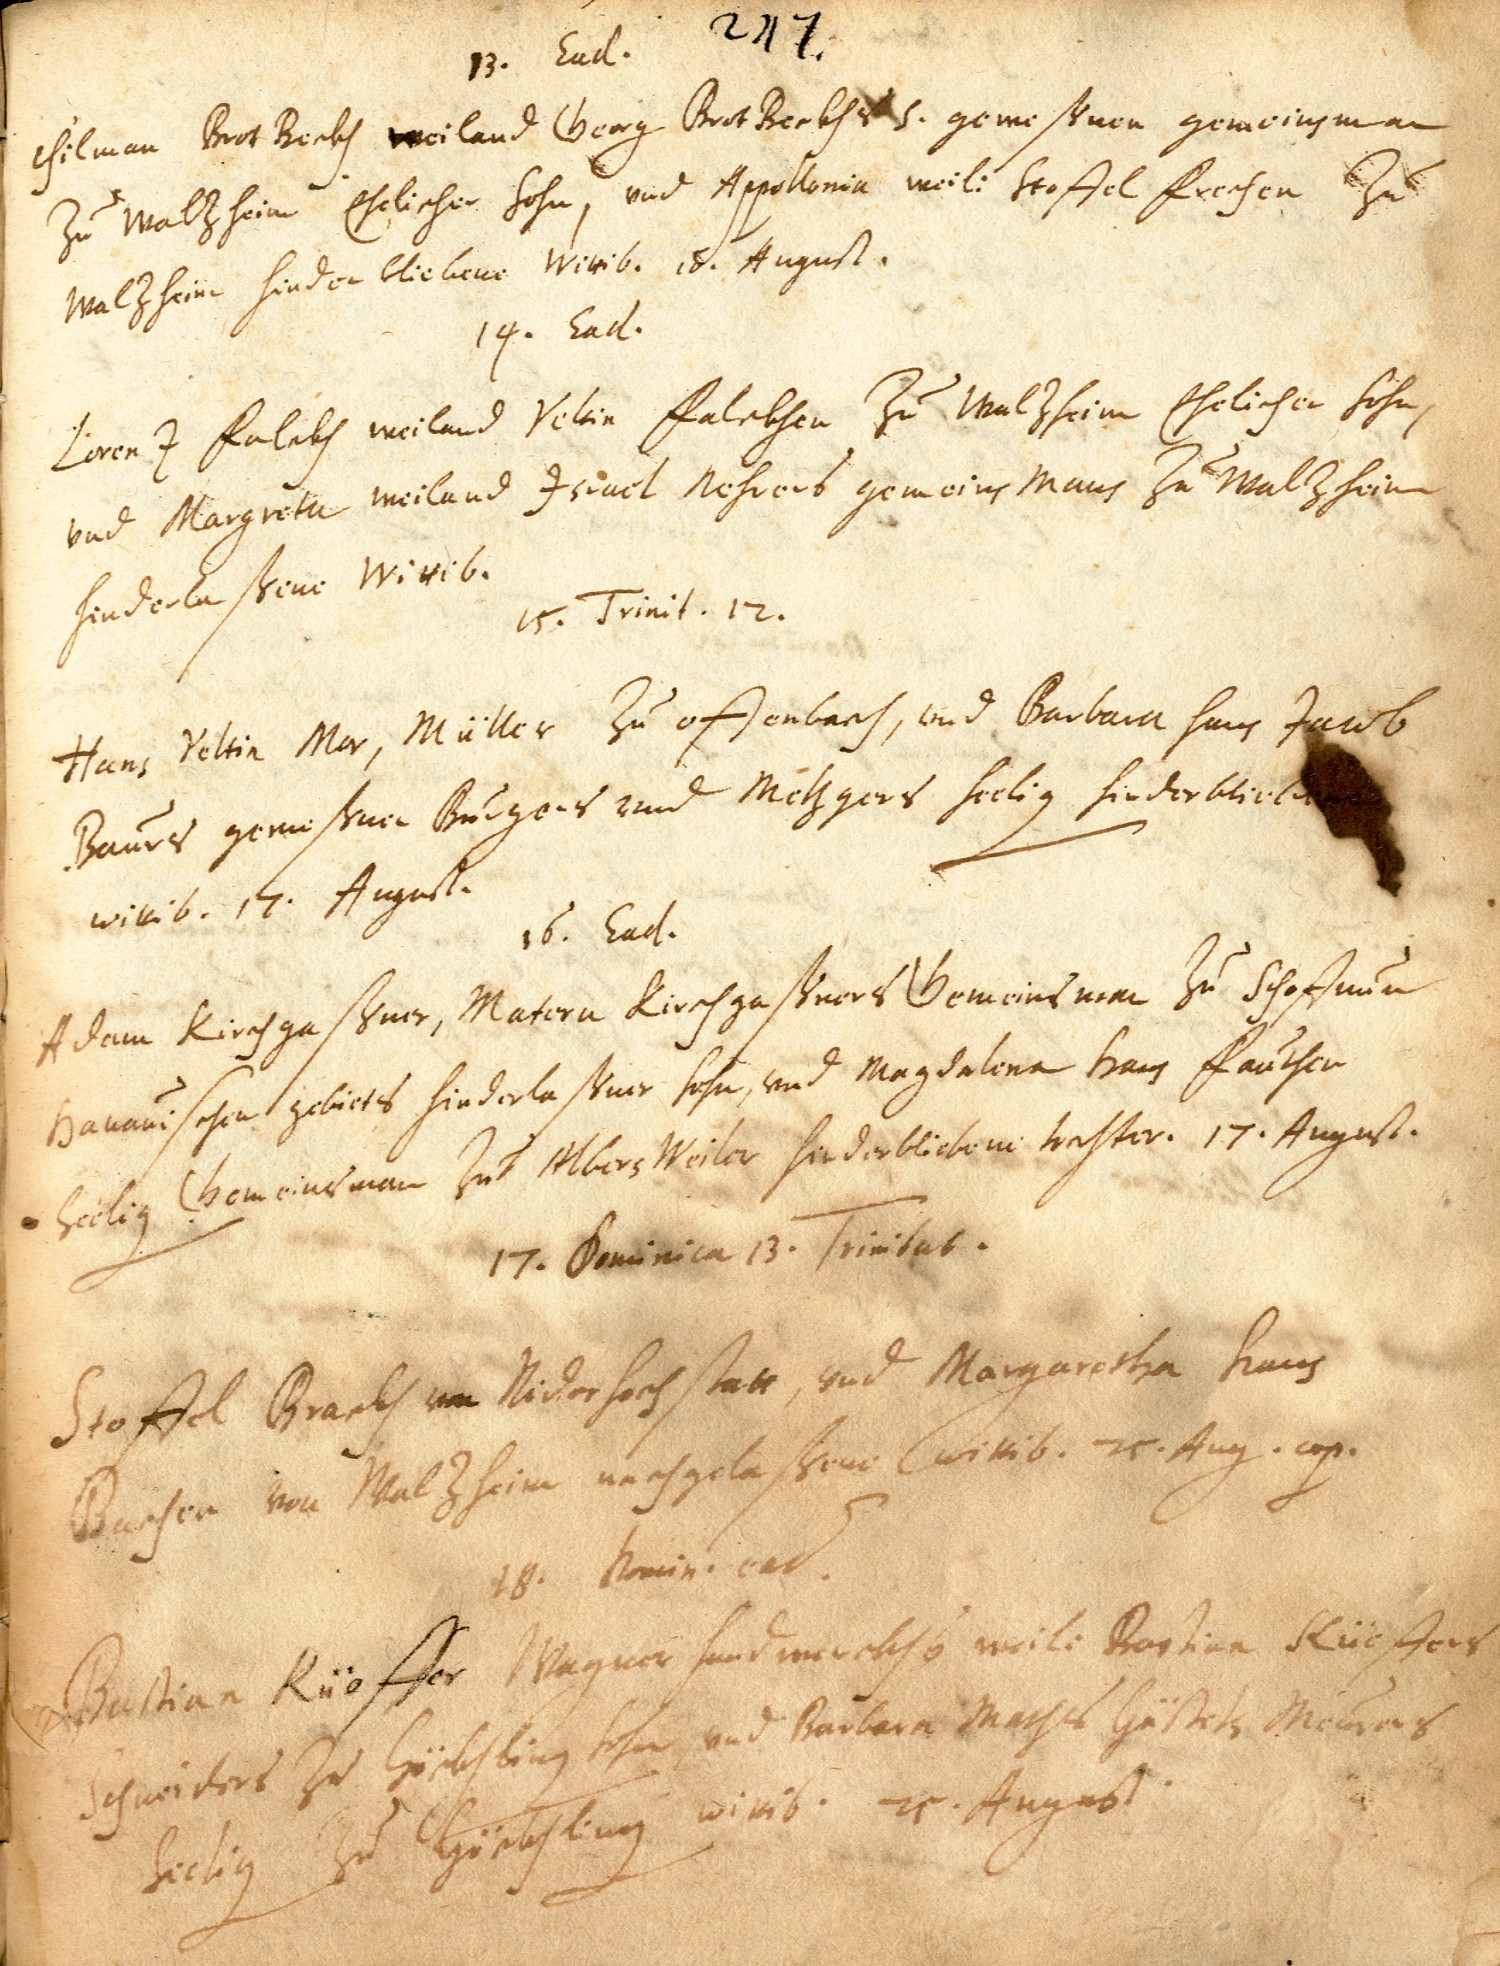 247.
13. Ead.
Thilman BrotBeckh weiland Georg BrotBeckhs S. geweßnen gemeinsman
Zu Walzheim Ehelicher Sohn, und Appollonia weil: Stoffel Frechen Zu
Walzheim hinderbliebene Wittib. 18. August.
14. Ead.
Lorentz Falckh weiland Veltin Falckhen Zu Walzheim Ehelicher Sohn,
und Margreta weiland Israel Nehrers gemeins Mans Zu Walzheim
hinderlaßene Wittib.
15. Trinit. 12.
Hans Veltin Mor, Müller Zu offenbach, und Barbara hans Jacob
Baurs geweßnen Burgers und Metzgers seelig hinderbliebene
wittib. 17. August.
16. Ead.
Adam Kirchgaßner, Matern Kirchgaßners Gemeinsman Zu
hanauischen gebiets hinderlaßner sohn, und Magdalena hans Fauthen
seelig Gemeinsman Zu Albersweiler hinderbliebene tochter. 17. August.
17. Dominica 13. Trinitat.
Stoffel Brackh von Niderhochstatt, und Margaretha hans
Bachen von Walzheim nachgelaßene wittib. 25. Aug. cop.
18. ead.
Bastian Küeffer Wagner handwerckhs weil: Bastian Küeffers
Schneiders Zu Göckhling sohn, und Barbara Mathes Meurers
seelig Zu Göckhling wittib. 25. August.